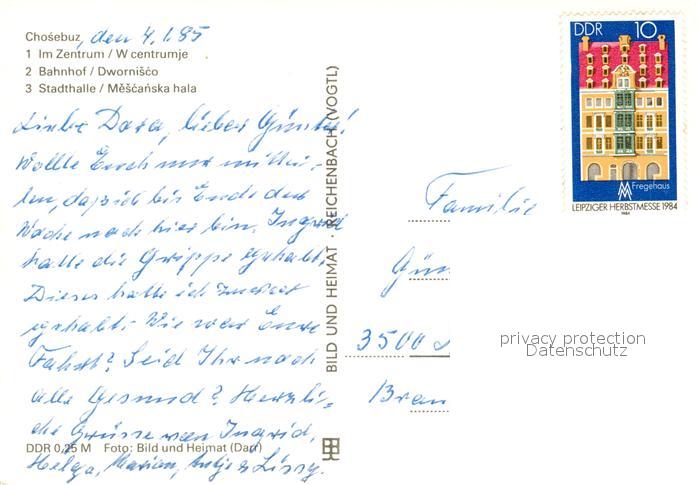 Chośebuz, den 4.1.85
1 Im Zentrum / W centrumje
2 Bahnhof / Dwornišćo
3 Stadthalle / Měšćańska hala
Liebe Dora, lieber Günter!
Wollte Euch nur mittei-
len, daß ich bis Ende der
Woche noch hier bin. Ingrid
hatte die Grippe gehabt.
Dieses hatte ich zuerst
gehabt. Wie war Eure
Fahrt? Seid Ihr noch
alle Gesund? Herzli-
che Grüsse von Ingrid,
Helga, Marion, Antje u. Lissy.
DDR 0,25 M Foto: Bild und Heimat (Darr)
BILD UND HEIMAT · REICHENBACH (VOGTL)
DDR 10
Fregehaus
LEIPZIGER HERBSTMESSE 1984
1984
Familie
Gün
3500
Bran
privacy protection
Datenschutz